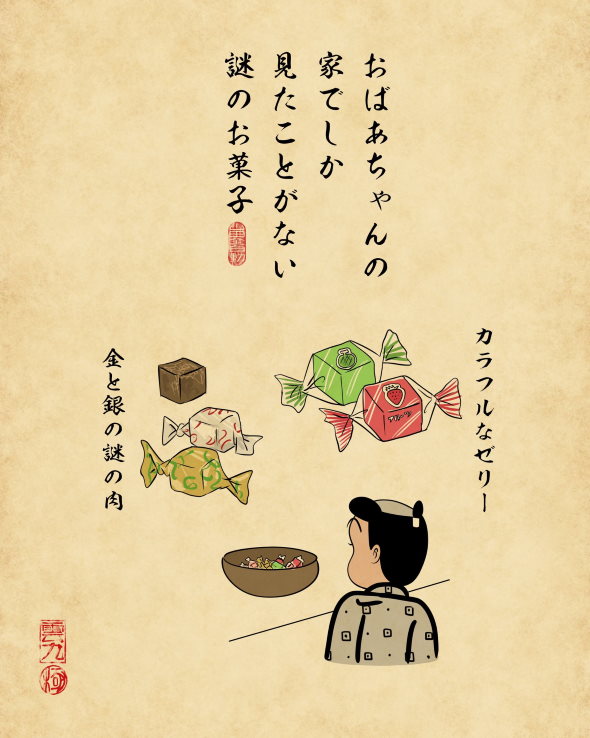 おばあちゃんの
家でしか
見たことがない
謎のお菓子
カラフルなゼリー
金と銀の謎の肉